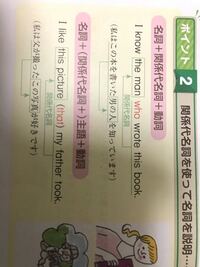 ポイント 2 関係代名詞を使って名詞を説明…
名詞+関係代名詞+動詞
I know the man who wrote this book.
関係代名詞
(私はこの本を書いた男の人を知っています)
名詞+(関係代名詞+)主語+動詞
I like this picture (that) my father took.
関係代名詞
(私は父が撮ったこの写真が好きです)